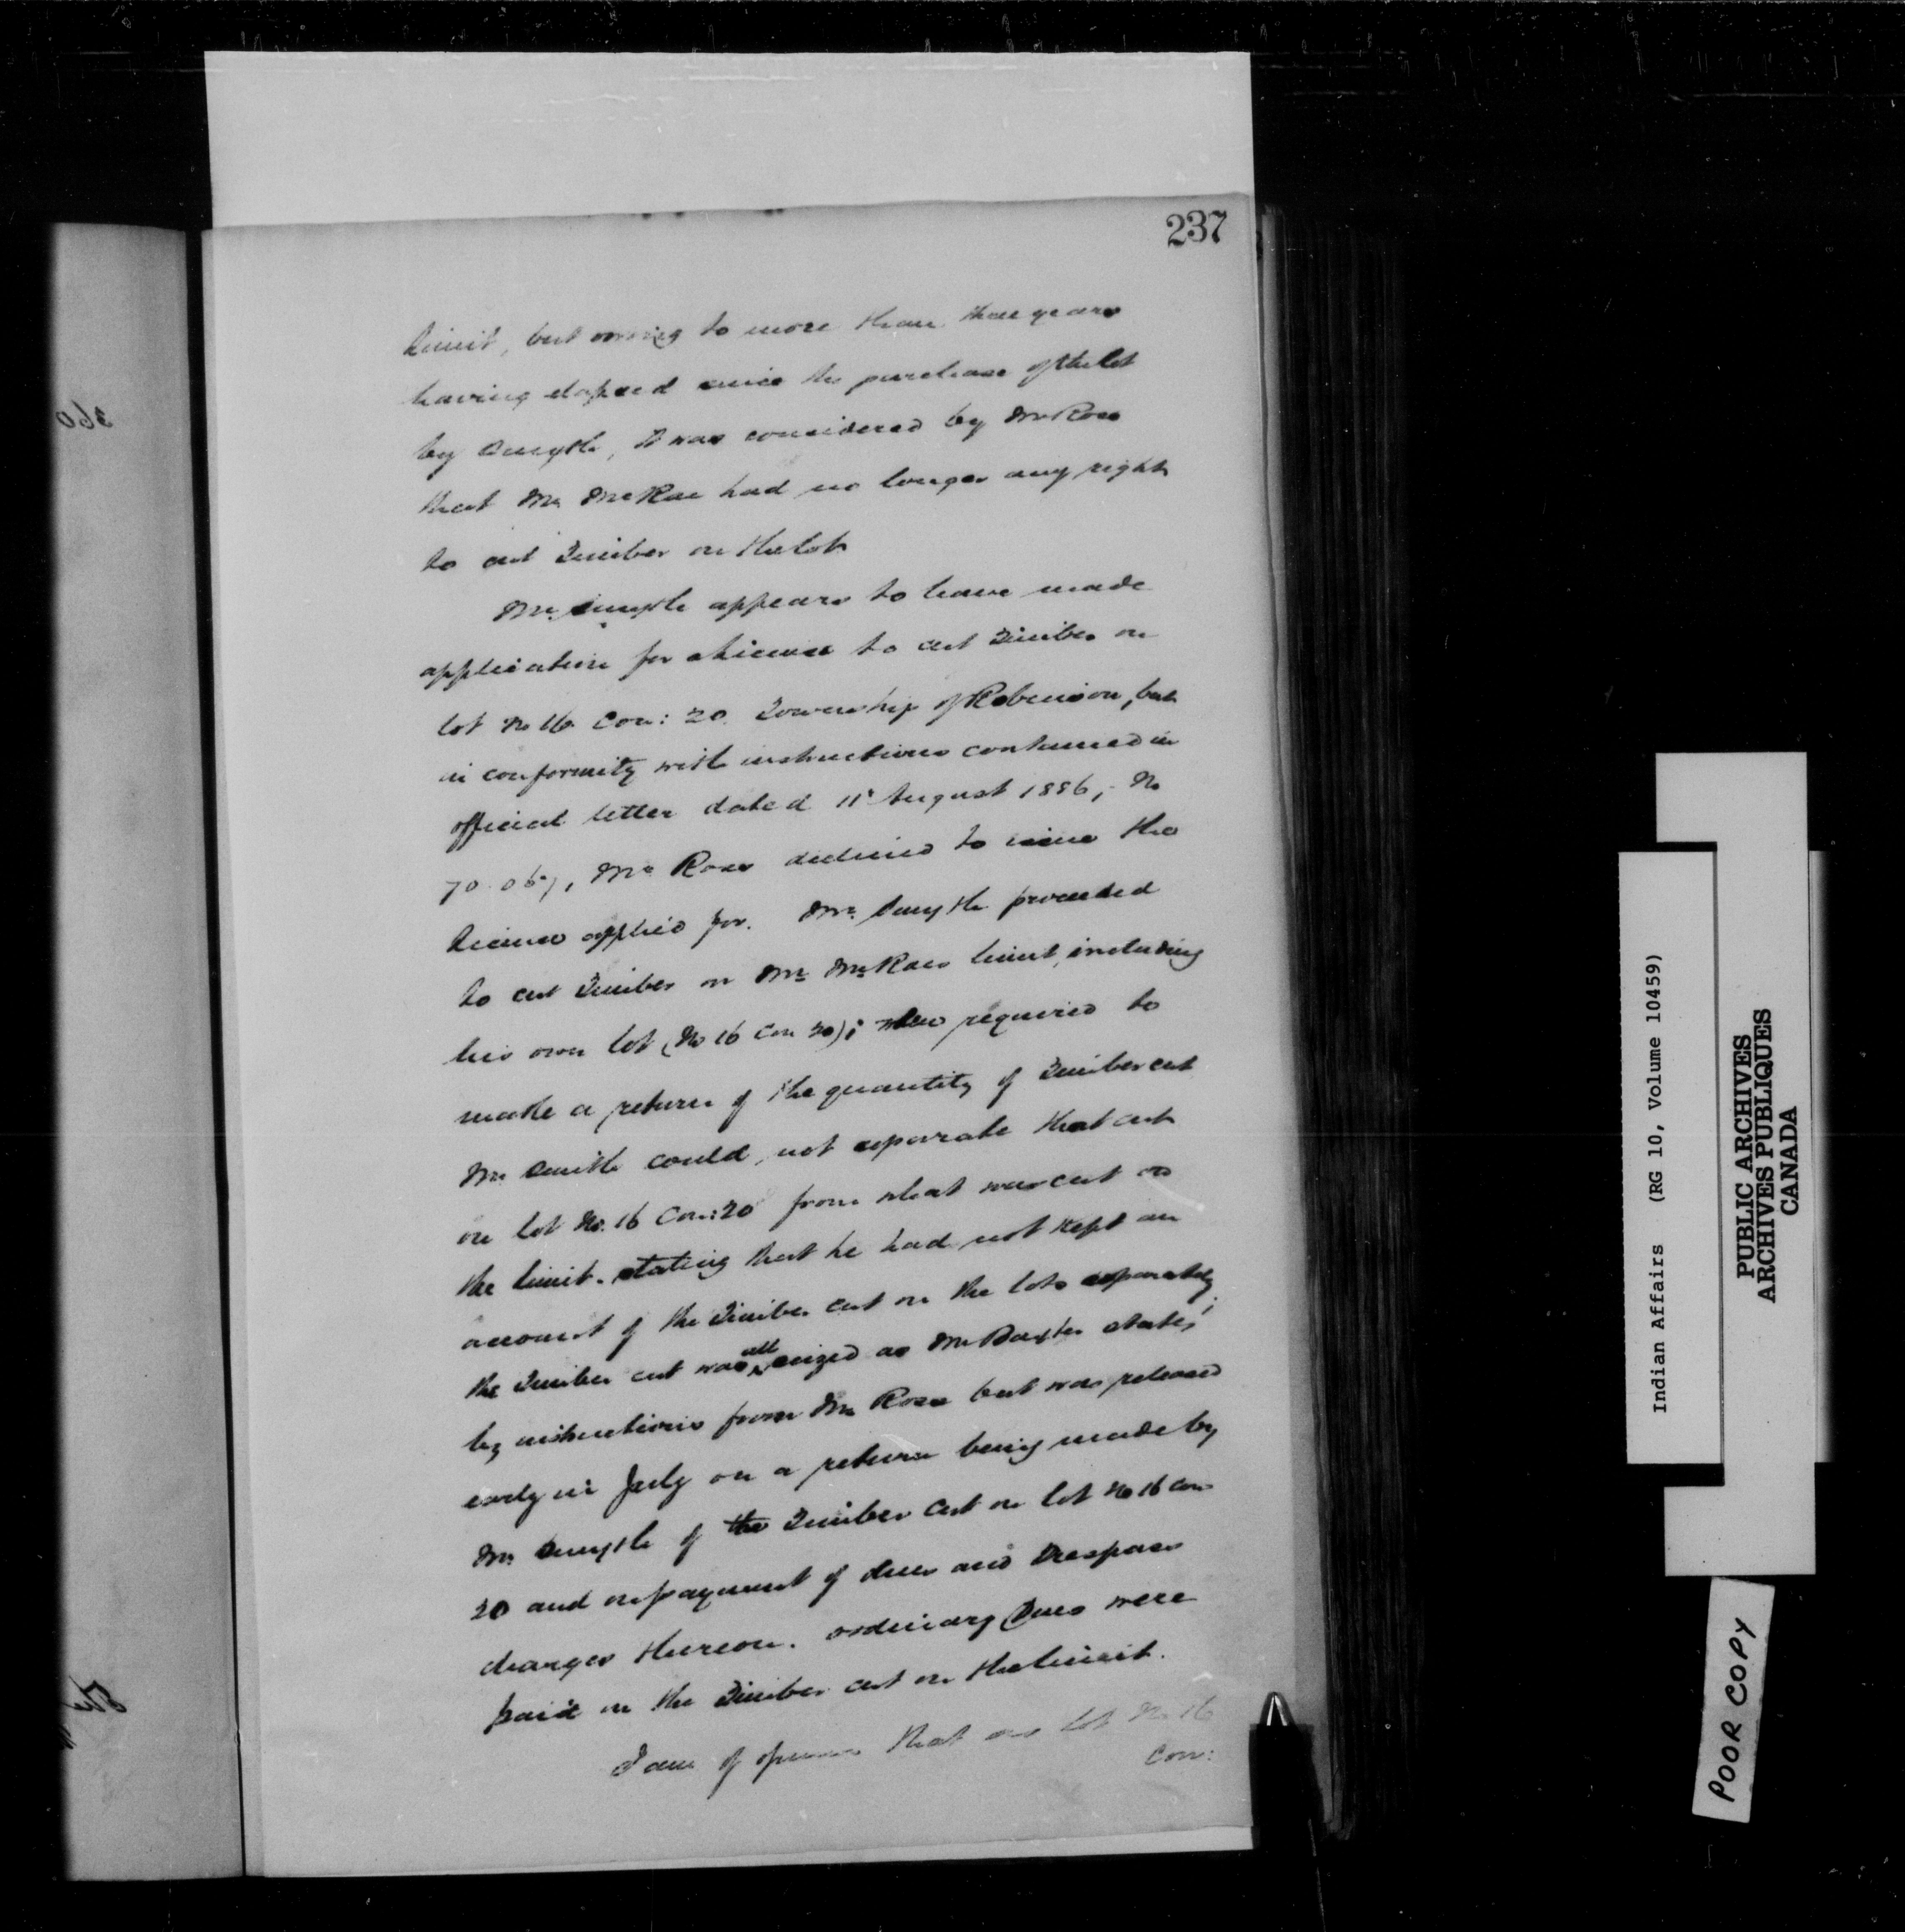 237
limit, but owing to more than three years
having elapsed since the purchase of the lot
by Smyth, it was considered by Mr Ross
that Mr McRae had no longer any right
to cut Timber on the lot
Mr Smyth appears to have made
application for a License to cut Timber on
lot No 16 Con: 20. Township of Robinson, but
in conformity with instructions contained in
official letter dated 11th August 1886, No
Mr Ross declined to issue the
license applied for. Mr Smyth proceeded
to cut Timber on Mr McRaes limit, including
his own lot (No 16 Con 20); when required to
make a return of the quantity of Timber cut
Mr Smith could not separate that cut
on lot No. 16 Con: 20 from what was cut on
the limit. stating that he had not kept an
account of the Timber cut on the lots separately;
the Timber cut was all seized as Mr Baxter states,
by instructions from Mr Ross but was released
early in July on a return being made by
Mr Smyth of the Timber cut on lot No 16 con
20 and on payment of dues and Trespass
charges thereon. ordinary Dues were
paid on the Timber cut on the limit.
I am of opinion that on lot No 16
Con:
Indian Affairs (RG 10, Volume 10459)
PUBLIC ARCHIVES
ARCHIVES PUBLIQUES
CANADA
POOR COPY